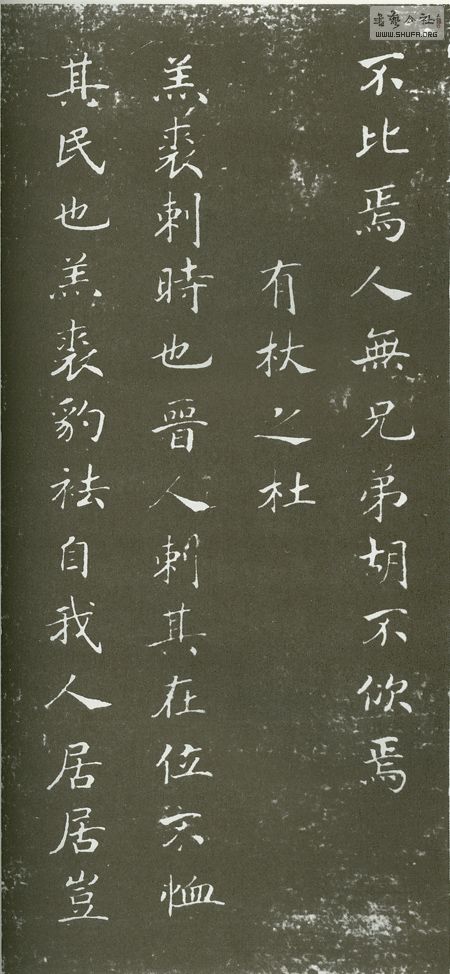 不比焉人無兄弟胡不佽焉
有杕之杜
羔裘刺時也晉人刺其在位不恤
其民也羔裘豹袪自我人居居豈
書藝公社
WWW.SHUFA.ORG